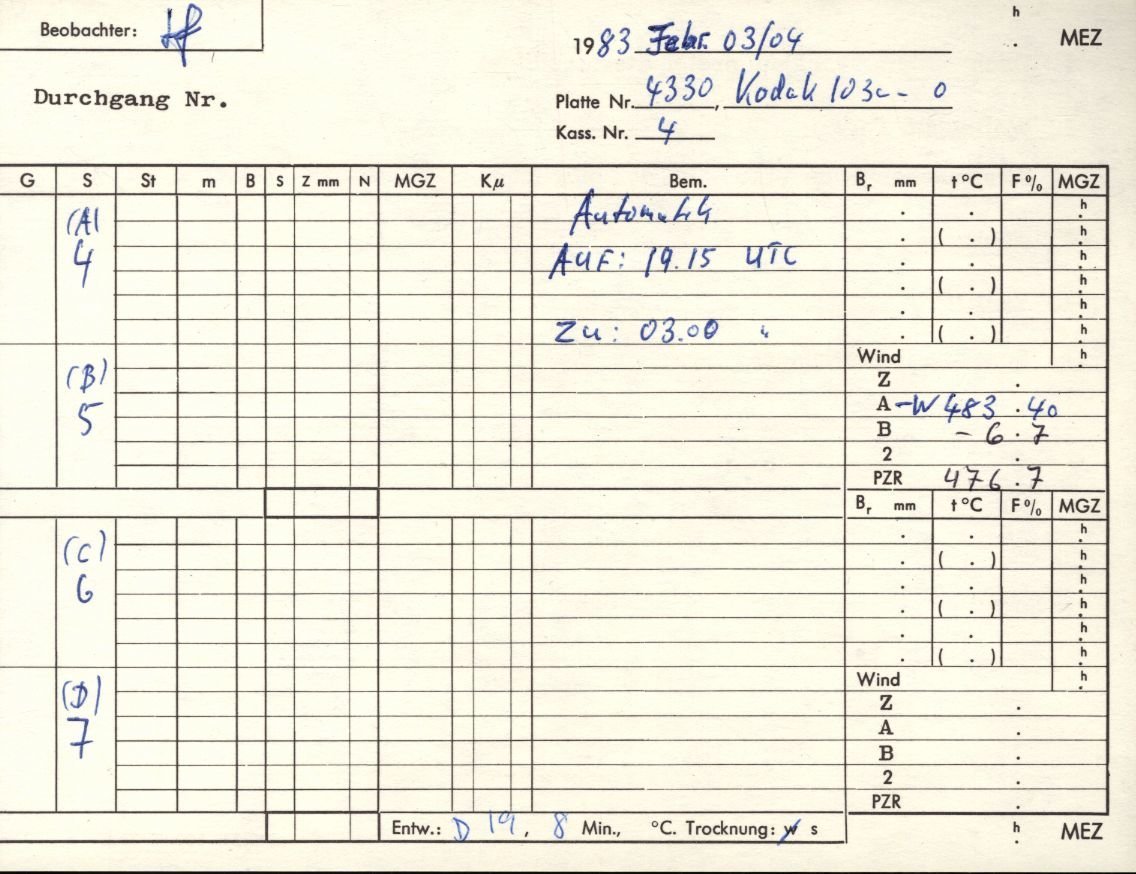 Beobachter: Hf
h
. MEZ
1983 Febr. 03/04
Durchgang Nr.
Platte Nr. 4330, Kodak 103a-0
Kass. Nr. 4
G S St m B S Z mm N MGZ Kμ Bem. Br mm t °C F % MGZ
(A) Automatik . . h
. ( . ) h
4 AUF: 19.15 UTC . . h
. ( . ) h
. . h
Zu: 03.00 " . ( . ) h
Wind h
(B) Z .
5 A -W 483.40
B - 6.7
2 .
PZR 476.7
Br mm t °C F % MGZ
. . h
(C) . ( . ) h
6 . . h
. ( . ) h
. . h
. ( . ) h
Wind h
(D) Z .
7 A .
B .
2 .
PZR .
Entw.: D 19, 8 Min., °C. Trocknung: w s h MEZ